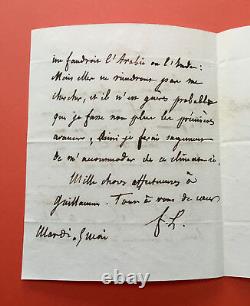 me faudroit l'Arabie ou l'Inde :
Mais elles ne viendront pas me
chercher, et il n'est guères probable
que je fasse non plus les premières
avances, Ainsi je ferai sagement
de m'accommoder de ce climat-ci
Mille choses affectueuses à
Guillaume. Tout à vous de cœur
F. L.
Mardi, 5 Mai
ebay